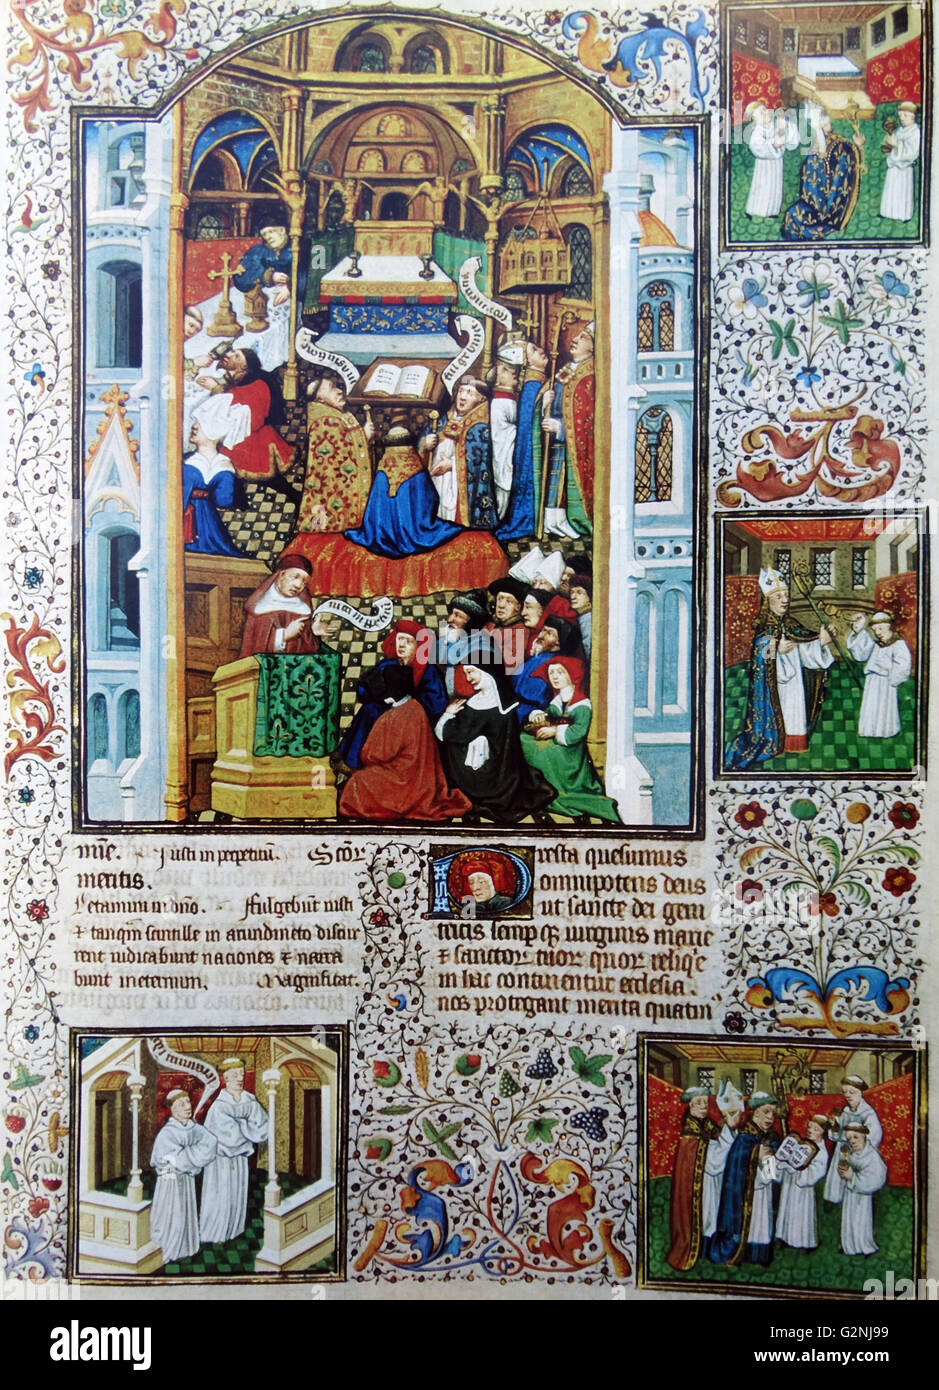 mine. Justi in perpetuū. Scōr
meritis.
Letamini in dn̄o. Fulgebūt iusti
⁊ tanqm̄ scintille in arundineto discur
rent iudicabunt naciones ⁊ n̄arra
bunt in eternum. Magnificat.
Presta quesumus
omnipotens deus
ut sancte dei geni
tricis semp̄ q̄ȝ uirginis marie
⁊ sanctor̄ tuor̄ quor̄ reliq̄e
in hac continentur ecclesia
nos protegant merita quatin᷒
a alamy stock photo
alamy
Image ID: G2NJ99
www.alamy.com